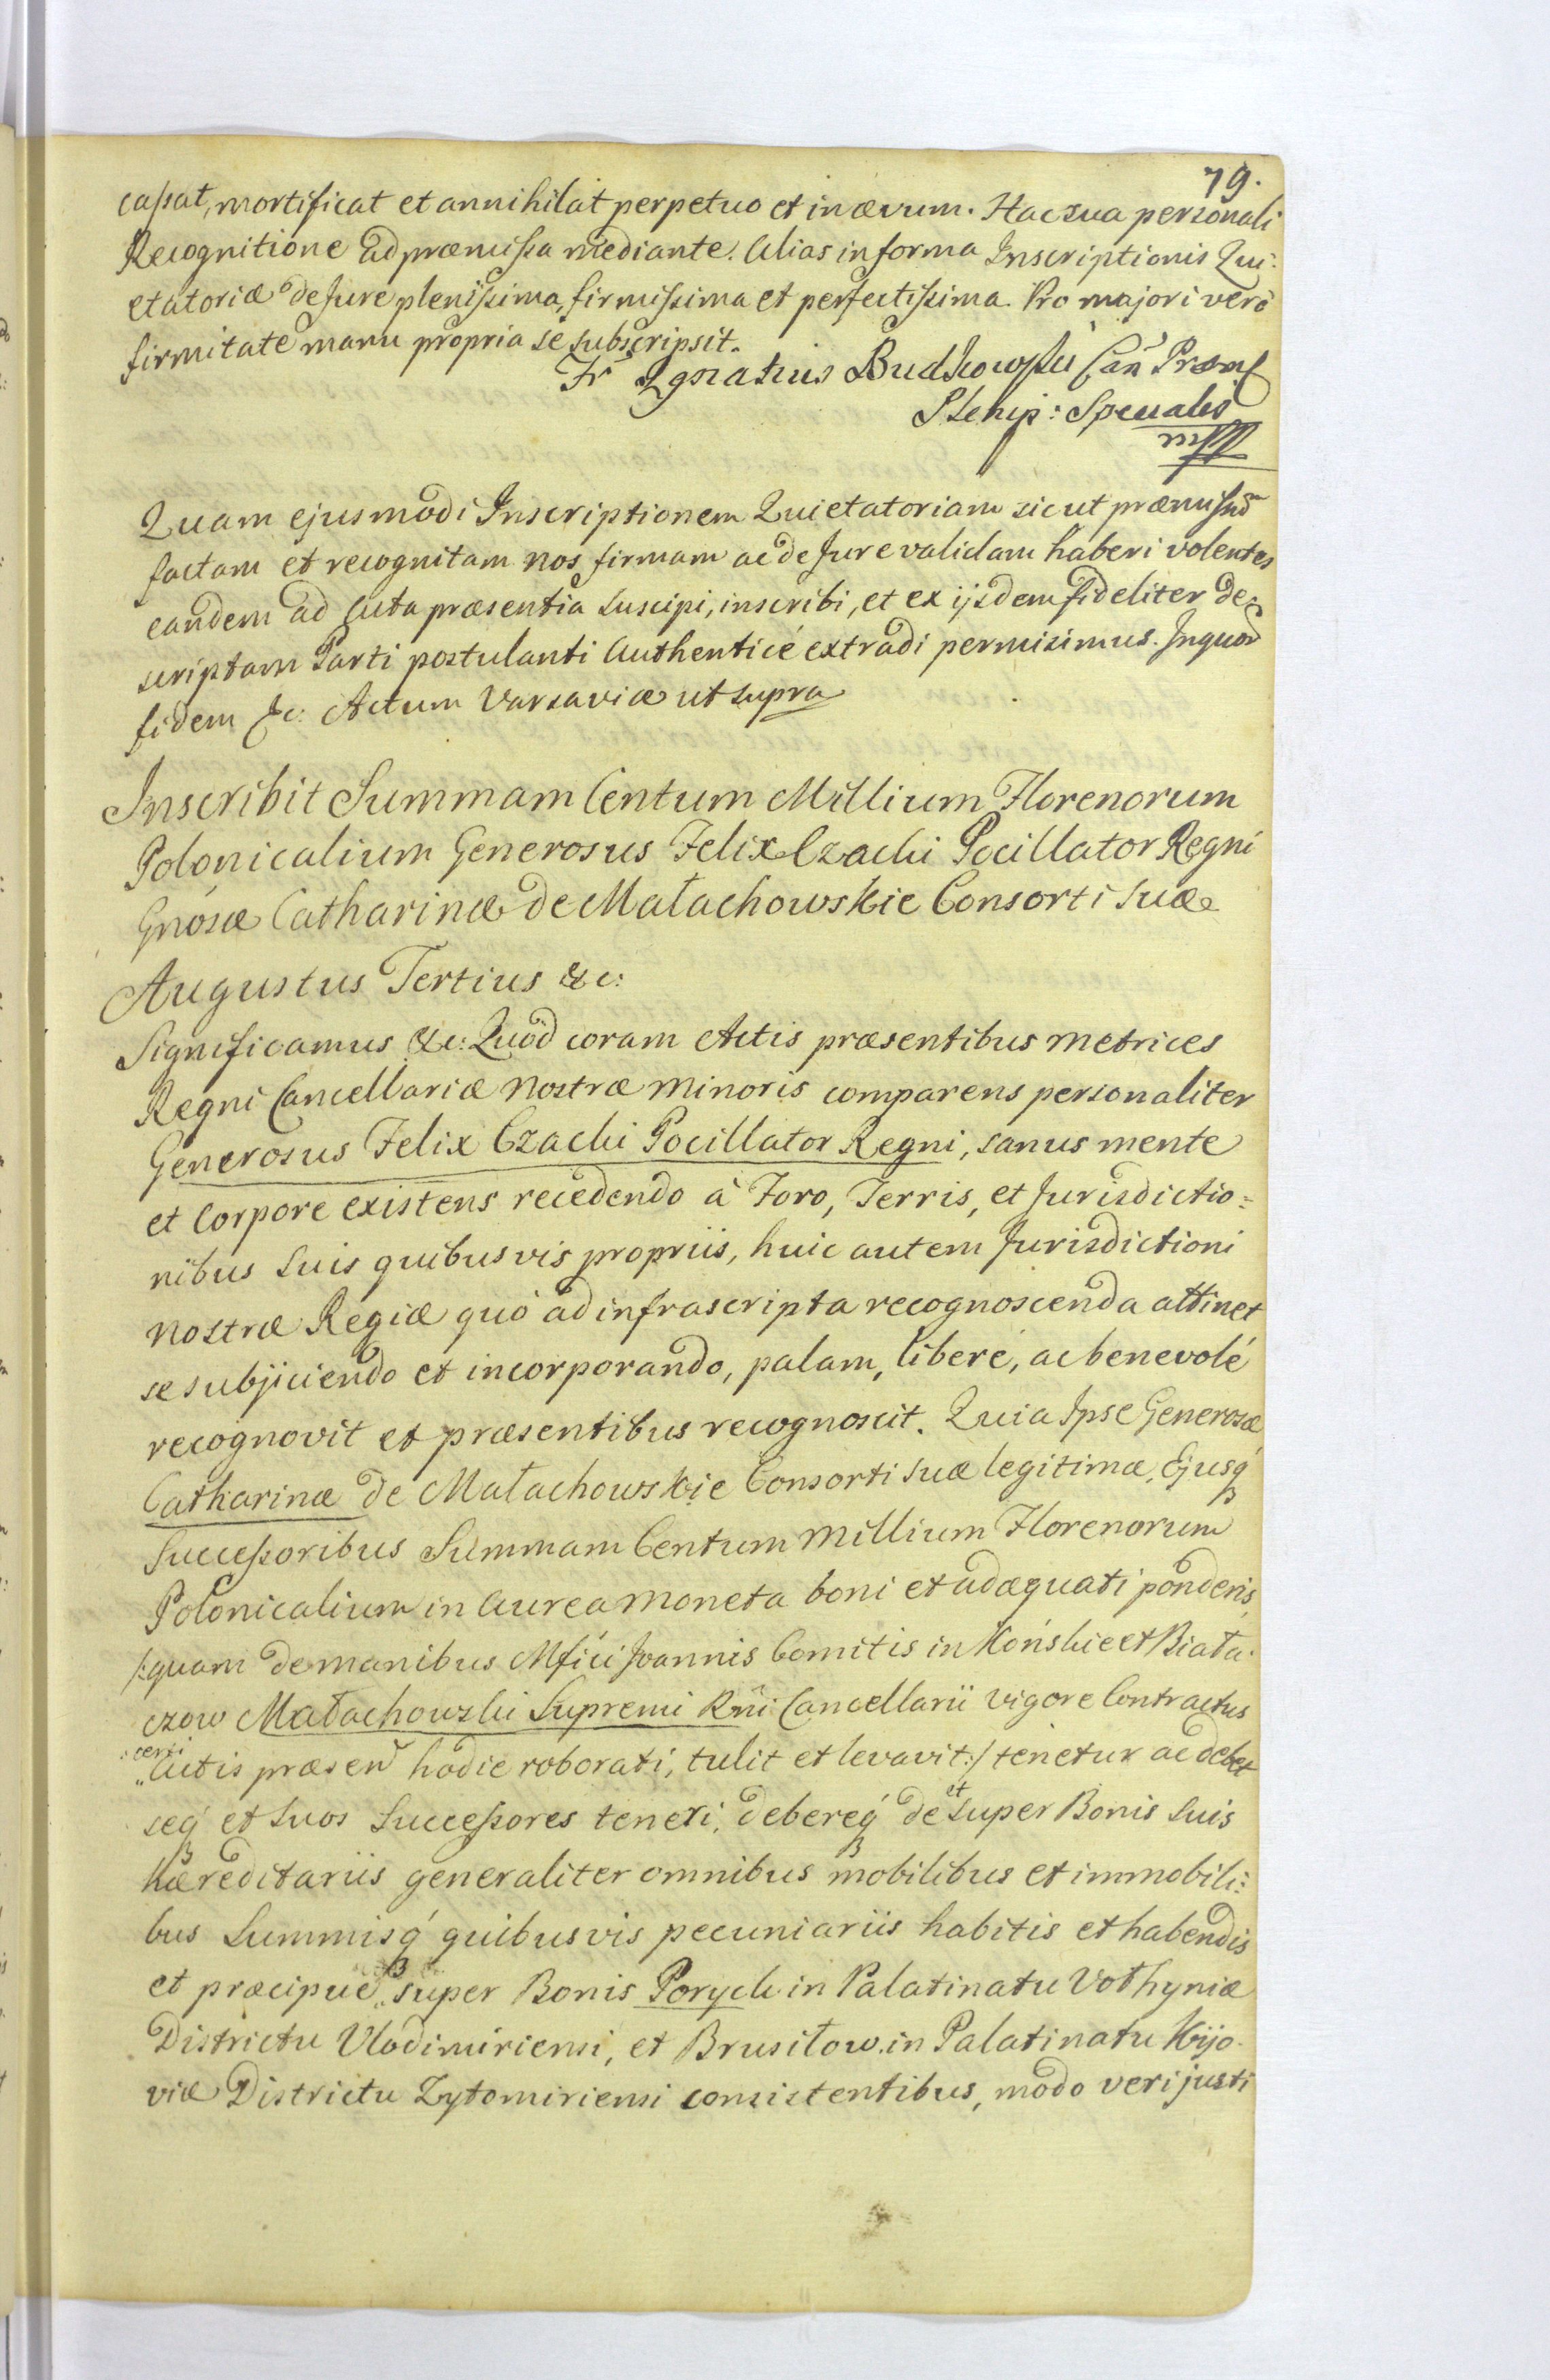 79.
cassat, mortificat et annihilat perpetuo et in ævum. Hac sua personali
Recognitione ad præmissa mediante. Alias in forma Inscriptionis Qui:
etatoriæ de Jure plenissima, firmissima et perfectissima. Pro majori verò
firmitate manu propria se subscripsit.
Fr Ignatius Budkowski Can Præm
Plenip: Specialis
mpp
Quam ejusmodi Inscriptionem Quietatoriam sicut præmissũ
factam et recognitam nos firmam ac de Jure validam haberi volentes
eandem ad Acta præsentia suscipi, inscribi, et ex ijsdem fideliter de:
scriptam Parti postulanti Authenticé extradi permisimus. In quor
fidem &c: Actum Varsaviæ ut supra
Inscribit Summam Centum Millium Florenorum
Polonicalium Generosus Felix Czacki Pocillator Regni
Gnósæ Catharinæ de Małachowskie Consorti suæ
Augustus Tertius &c:
Significamus &c: Quód coram Actis præsentibus Metrices
Regni Cancellariæ Nostræ Minoris comparens personaliter
Generosus Felix Czacki Pocillator Regni, sanus mente
et Corpore existens recedendo à Foro, Terris, et Jurisdictio=
nibus suis quibusvis propriis, huic autem Jurisdictioni
Nostræ Regiæ quò ad infrascripta recognoscenda attinet
se subjiciendo et incorporando, palam, liberé, ac benevolé
recognovit et præsentibus recognoscit. Quia Ipse Generosæ
Catharinæ de Małachowskie Consorti suæ legitimæ, Ejusq́
Successoribus Summam Centum Millium Florenorum
Polonicalium in Aurea Moneta boni et adæquati ponderis,
/:quam de manibus Mfici Joannis Comitis in Końskie et Biała.
czow Małachowski Supremi Rñi Cancellarii vigore Contractus
certi
Actis præsen̆ hodie roborati, tulit et levavit:/ tenetur ac debet
seq́ et suos Successores teneri, debereq́ de et super Bonis suis
hæreditariis generaliter omnibus mobilibus et immobili:
bus Summisq́ quibusvis pecuniariis habitis et habendis
et præcipué super Bonis Poryck in Palatinatu Vołhyniæ
Districtu Vlodimiriensi, et Brusiłow in Palatinatu Kijo.
viæ Districtu Zytomiriensi consistentibus, modo veri justi